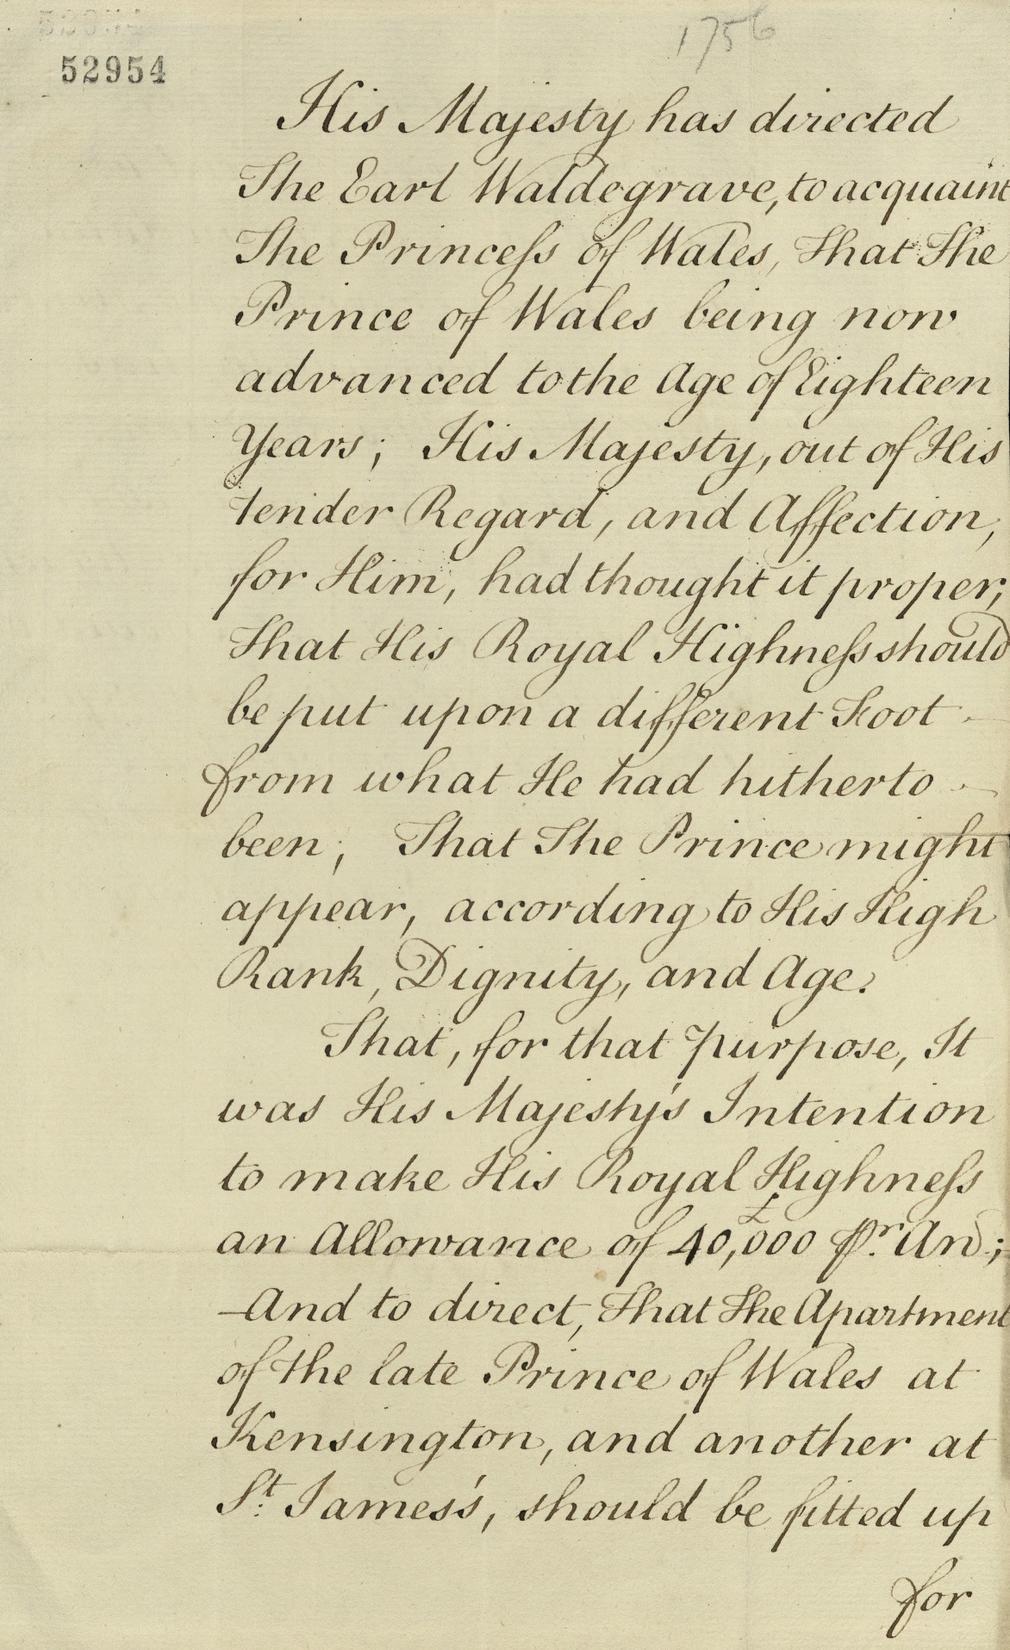 1756
52954
His Majesty has directed
The Earl Waldegrave, to acquaint
The Princeſs of Wales, That The
Prince of Wales being now
advanced to the Age of Eighteen
Years; His Majesty, out of His
tender Regard, and Affection,
for Him, had thought it proper,
That His Royal Highneſs should
be put upon a different Foot
from what He had hitherto
been; That The Prince might
appear, according to His High
Rank, Dignity, and Age.
That, for that purpose, It
was His Majesty's Intention
to make His Royal Highneſs
an Allowance of £40,000 Pr. An;
And to direct, That The Apartment
of the late Prince of Wales at
Kensington, and another at
St. James's, should be fitted up
for